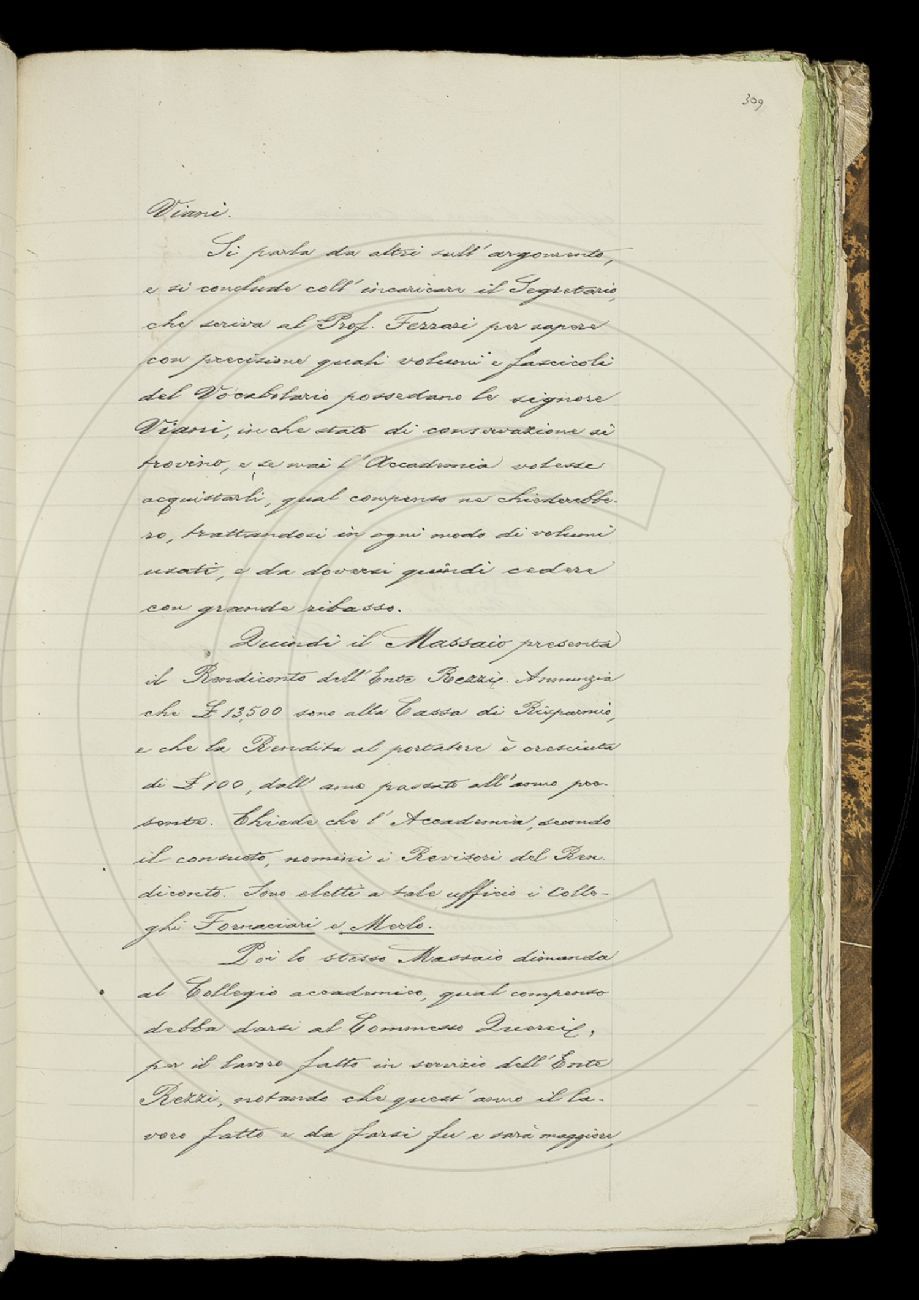 309
Viani.
Si parla da altri sull'argomento,
e si conclude coll'incaricare il Segretario,
che scriva al Prof. Ferrari per sapere
con precisione quali volumi e fascicoli
del Vocabolario possedano le signore
Viani, in che stato di conservazione si
trovino, e se mai l'Accademia volesse
acquistarli, qual compenso ne chiederebbe-
ro, trattandosi in ogni modo di volumi
usati, e da doversi quindi cedere
con grande ribasso.
Quindi il Massaio presenta
il Rendiconto dell'Ente Rezzi. Annunzia
che £ 13,500 sono alla Cassa di Risparmio,
e che la Rendita al portatore è cresciuta
di £ 100, dall'anno passato all'anno pre-
sente. Chiede che l'Accademia, secondo
il consueto, nomini i Revisori del Ren-
diconto. Sono eletti a tale ufficio i Colle-
ghi Fornaciari e Merlo.
Poi lo stesso Massaio dimanda
al Collegio accademico, qual compenso
debba darsi al Commesso Querci,
per il lavoro fatto in servizio dell'Ente
Rezzi, notando che quest'anno il la-
voro fatto e da farsi fu e sarà maggiore,